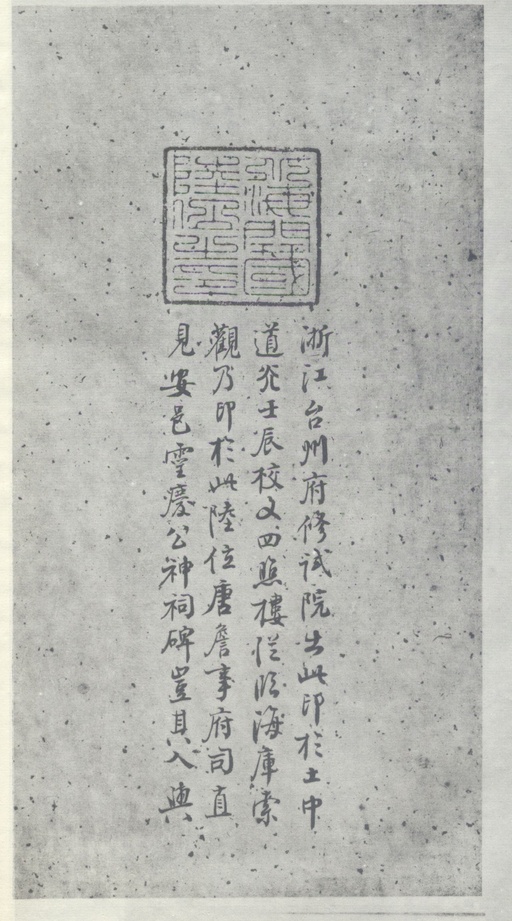 浙江台州府修試院出此印於土中
道光壬辰校文四照樓從臨海庫索
觀乃印於此陸位唐詹事府司直
見安邑靈慶公神祠碑豈其人與